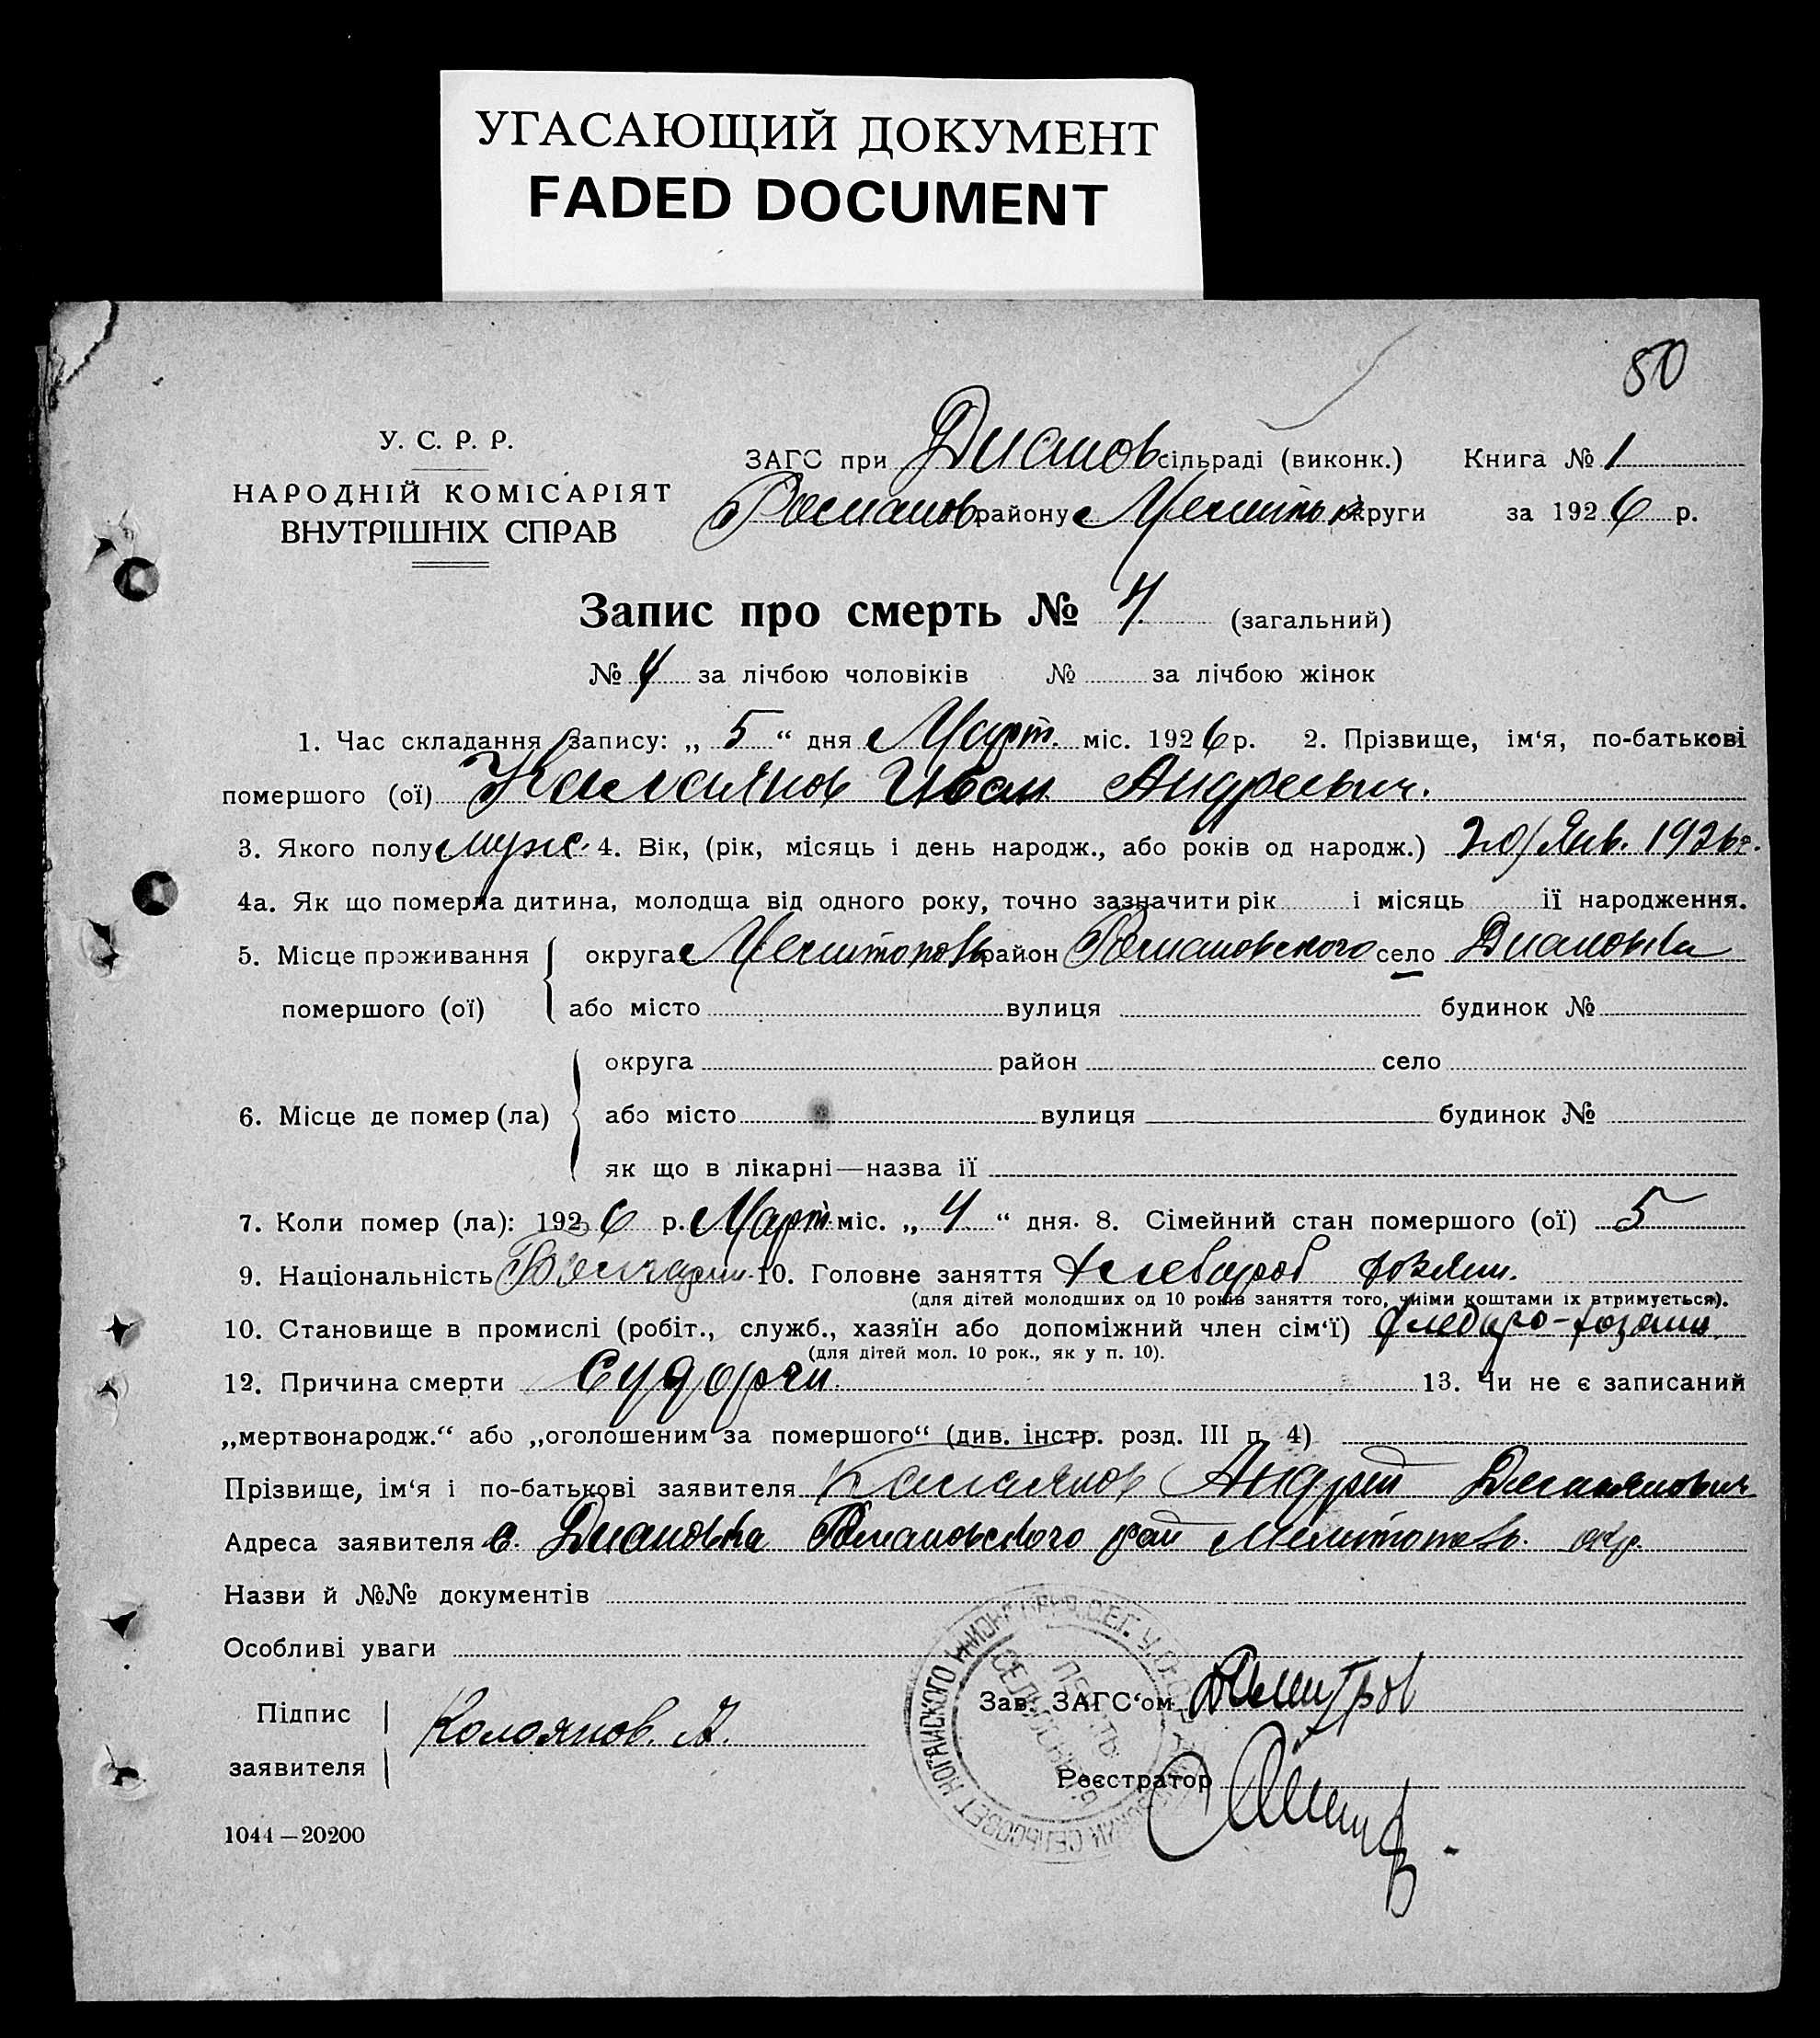 УГАСАЮЩИЙ ДОКУМЕНТ
FADED DOCUMENT
50
У. С. Р. Р.
НАРОДНІЙ КОМІСАРІЯТ
ВНУТРІШНІХ СПРАВ
ЗАГС при Дианов сільраді (виконк.) Книга № 1
Романов. району Мелитоп округи за 1926 р.
Запис про смерть № 4 (загальний)
№ 4 за лічбою чоловіків № за лічбою жінок
1. Час складання запису: „ 5 “ дня Март. міс. 1926 р. 2. Прізвище, ім‘я, по-батькові
помершого (ої) Калоянов Иван Андреевич.
3. Якого полу муж. 4. Вік, (рік, місяць і день народж., або років од народж.) 20/Янв. 1926 г.
4а. Як що померла дитина, молодща від одного року, точно зазначити рік і місяць її народження.
5. Місце проживання округа Мелитополь район Романовского село Диановка
помершого (ої) або місто вулиця будинок №
округа район село
6. Місце де помер (ла) або місто вулиця будинок №
як що в лікарні—назва її
7. Коли помер (ла): 1926 р. Март. міс. „ 4 “ дня. 8. Сімейний стан помершого (ої) 5
9. Національність Болгарин 10. Головне заняття Хлебороб хозяин.
(для дітей молодших од 10 років заняття того, чиїми коштами їх втримується).
10. Становище в промислі (робіт., служб., хазяїн або допоміжний член сім‘ї) Хлеборо-хозяин.
(для дітей мол. 10 рок., як у п. 10).
12. Причина смерти Судорги. 13. Чи не є записаний
„мертвонародж.“ або „оголошеним за помершого“ (див. інстр. розд. III п. 4)
Прізвище, ім‘я і по-батькові заявителя Калоянов Андрей
Адреса заявителя с. Диановка Романовского рай Мелитополь. окр.
Назви й №№ документів
Особливі уваги
Підпис
заявителя
Калоянов. А.
Зав. ЗАГС‘ом Димитров
Реєстратор
НОГАЙСКОГО
СЕЛЬСОВЕТ
1044—20200